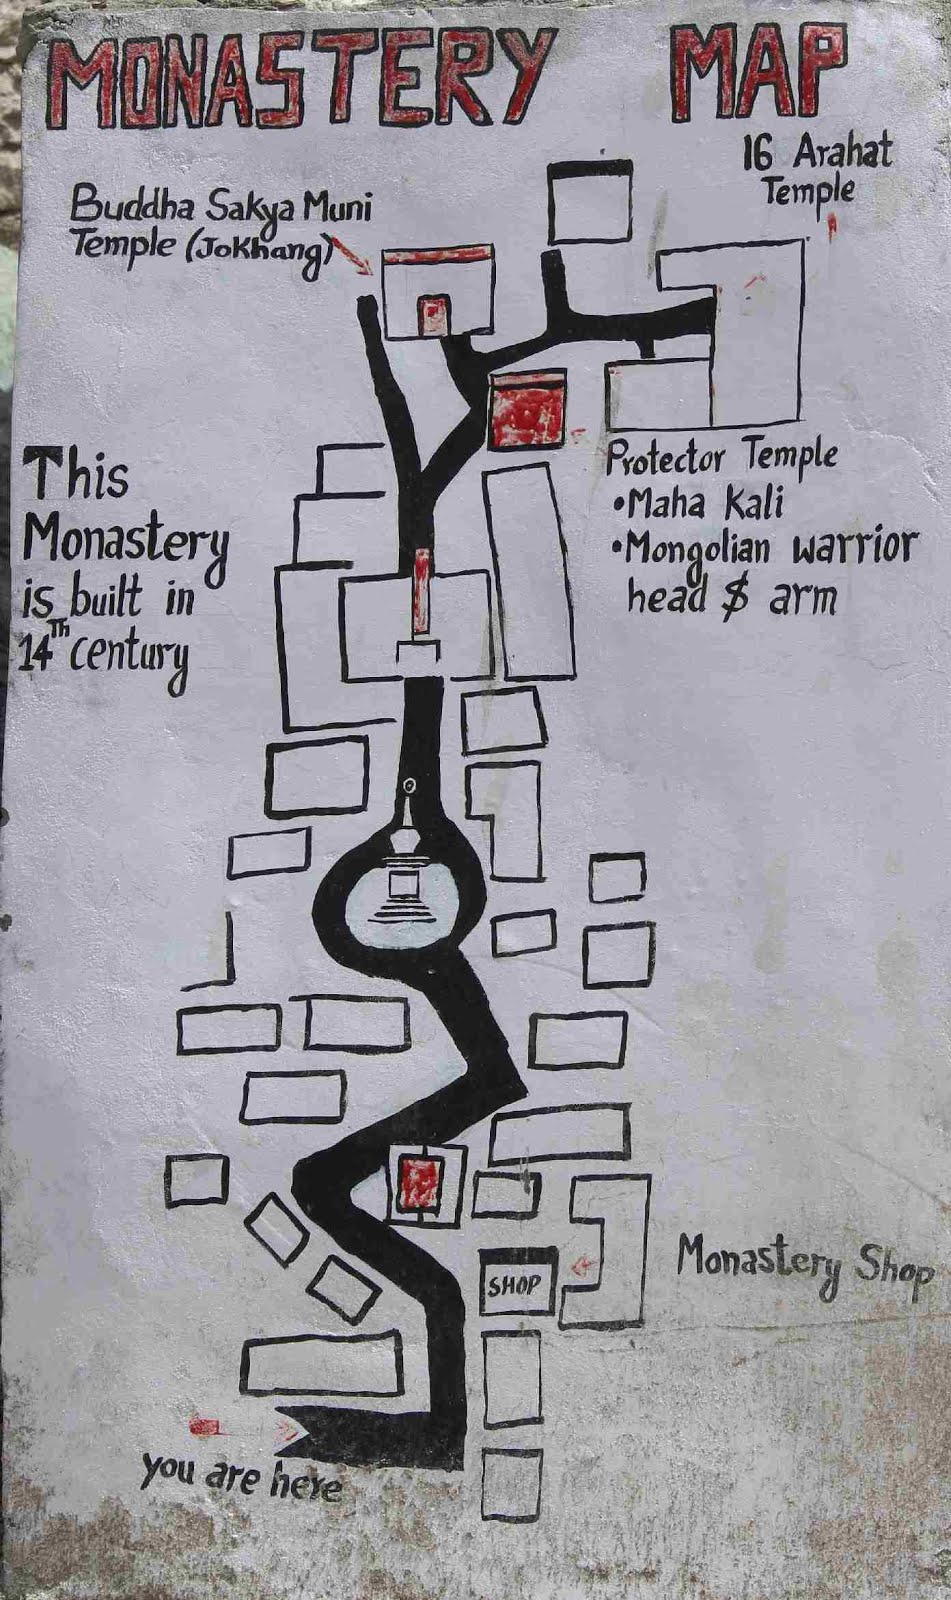 MONASTERY MAP
16 Arahat
Temple
Buddha Sakya Muni
Temple (JoKhang)
This
Monastery
is built in
14TH century
Protector Temple
•Maha Kali
•Mongolian warrior
head $ arm
Monastery Shop
SHOP
you are here